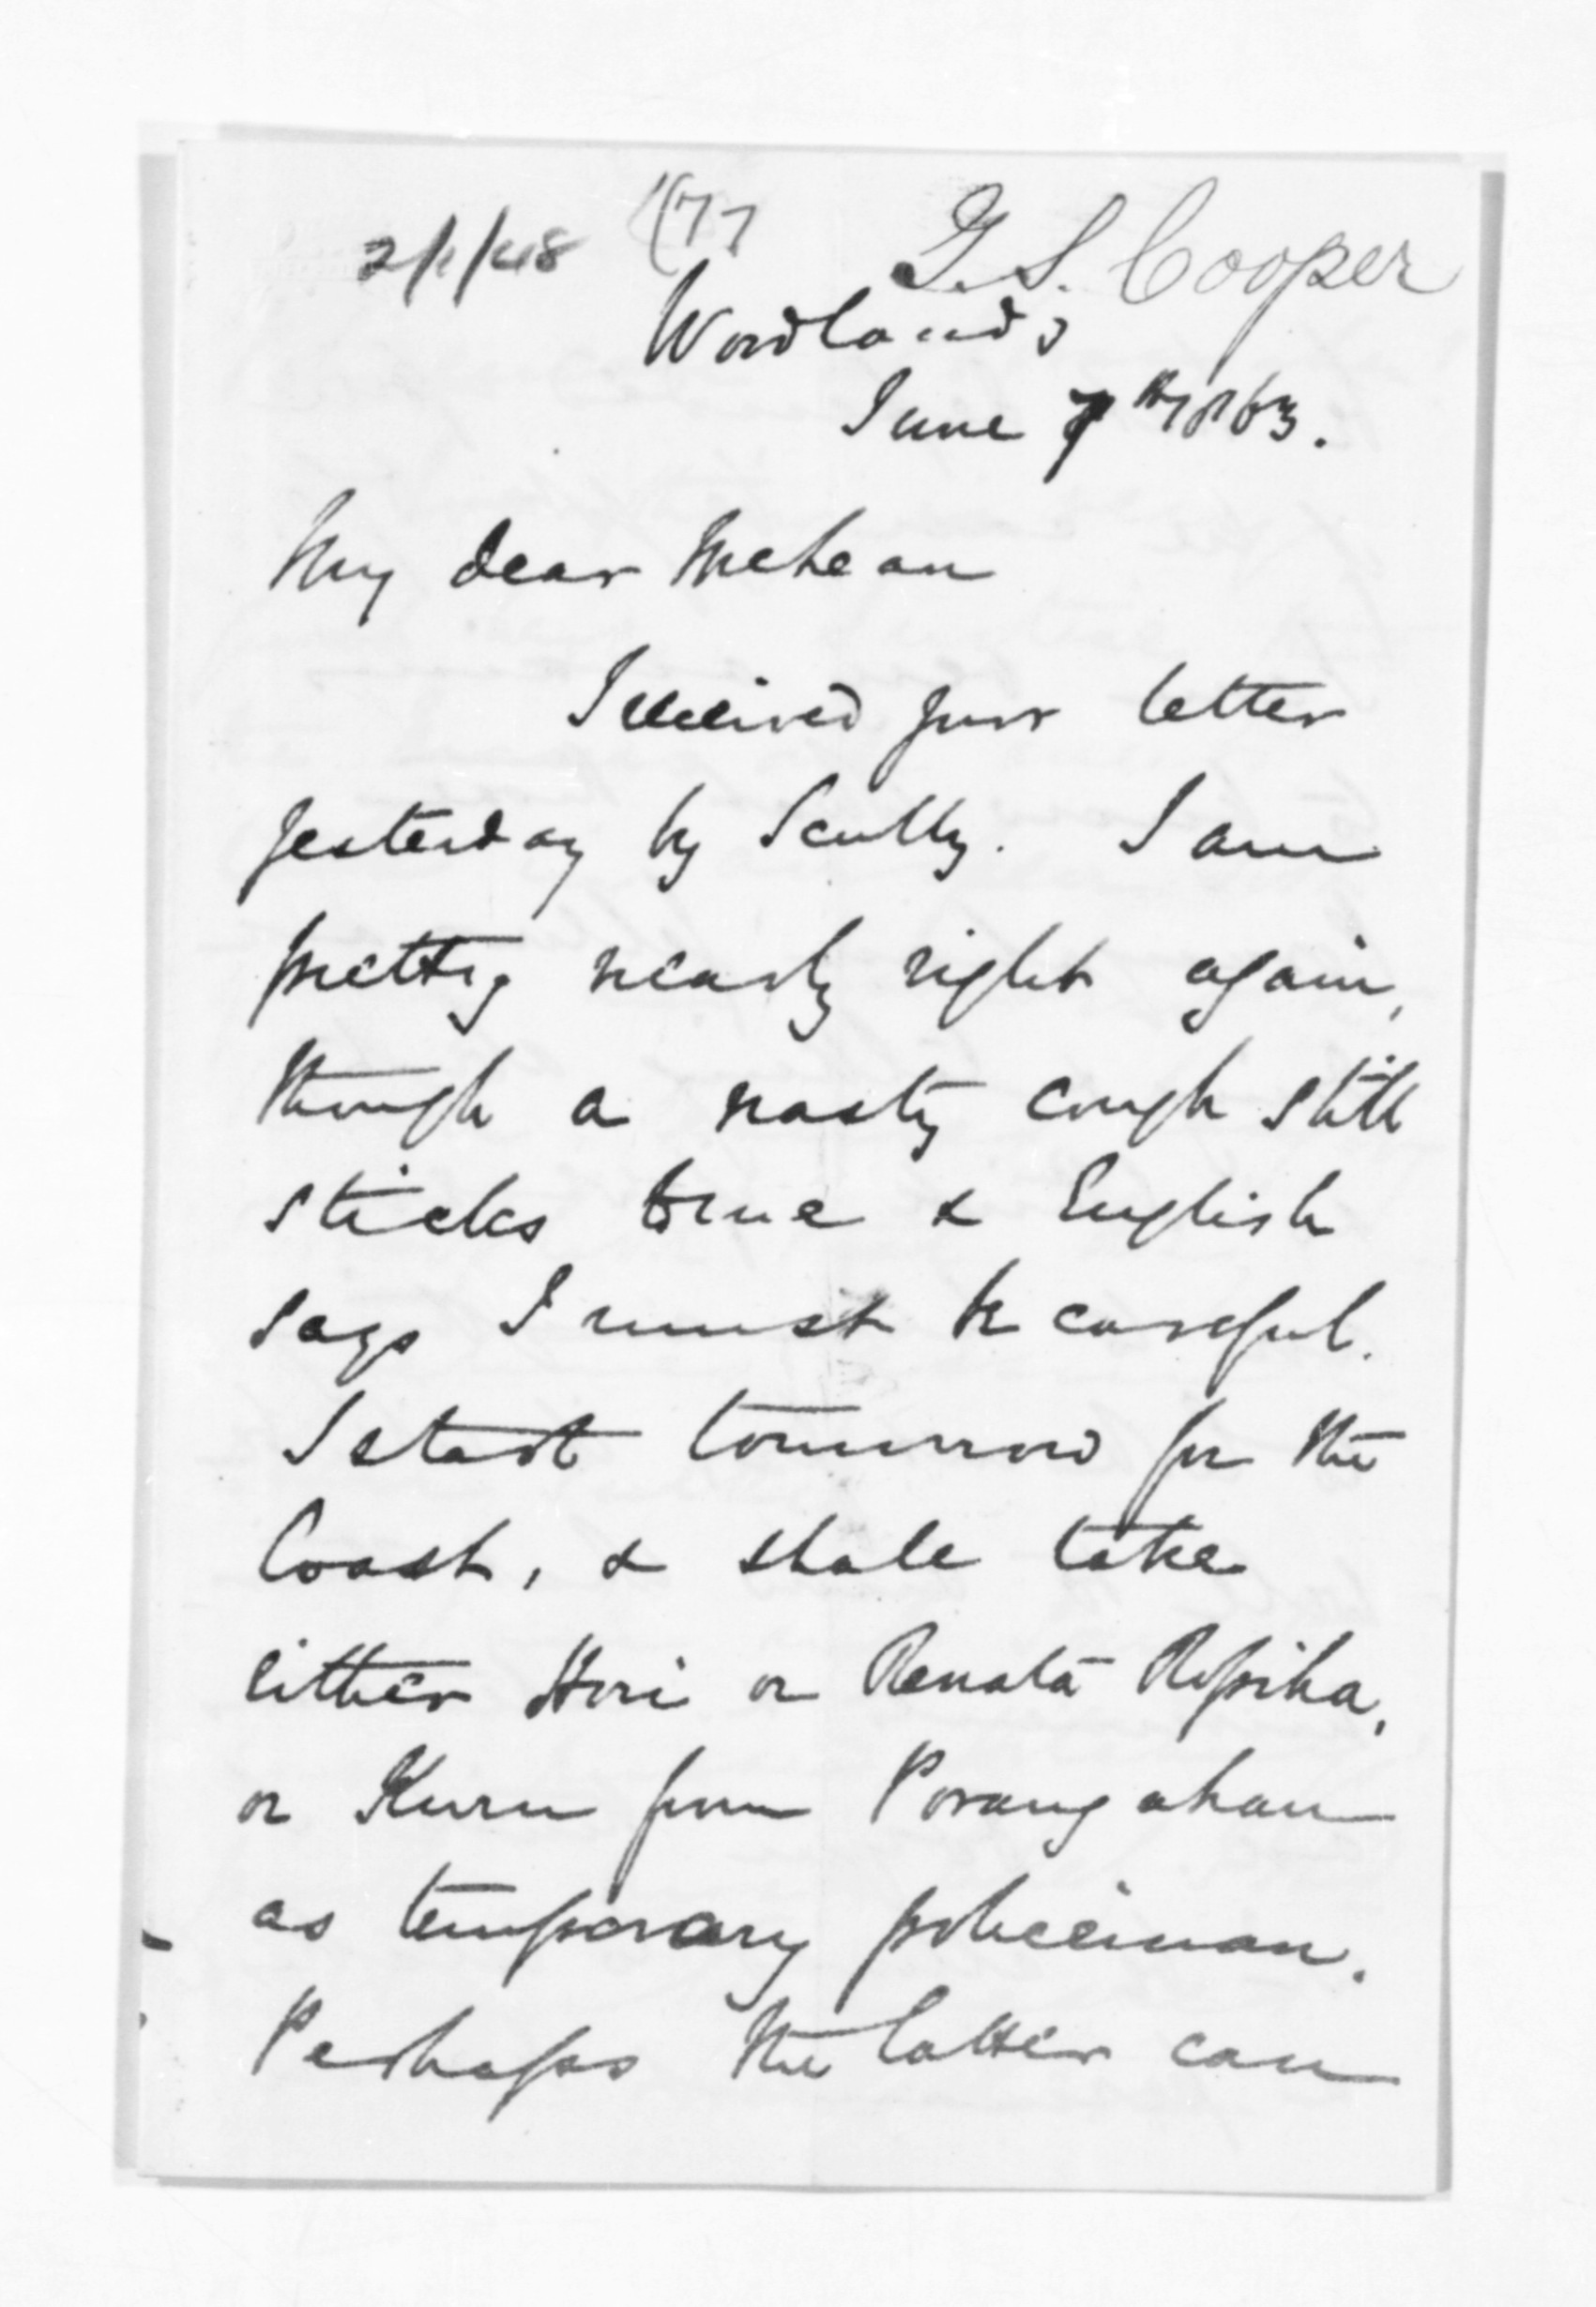 2/1/48 177 G. S. Cooper
Woodlands
June 7th 1863.
My dear McLean
I received your letter
yesterday by Scully. I am
pretty nearly right again,
though a nasty cough still
sticks true & English
says I must be careful.
I start tomorrow for the
Coast, & shall take
either Hori or Renata Ropiha,
or Kuru from Porangahau
as temporary policeman.
Perhaps the latter can